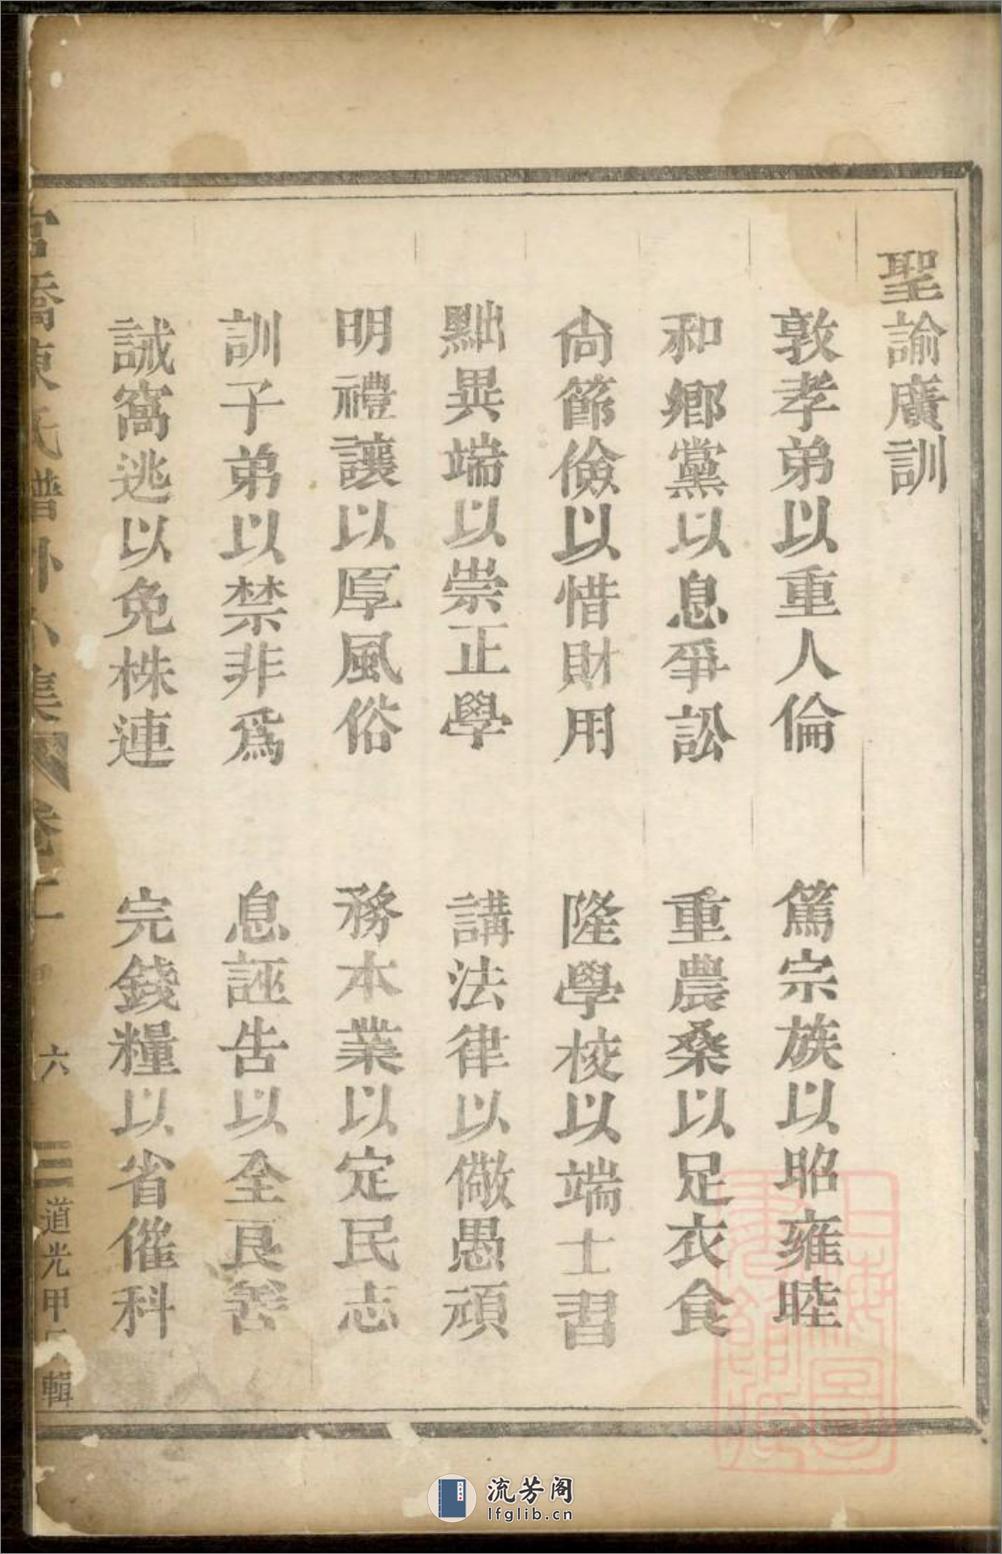 聖諭廣訓
敦孝弟以重人倫　篤宗族以昭雍睦
和鄉黨以息爭訟　重農桑以足衣食
尚節儉以惜財用　隆學校以端士習
黜異端以崇正學　講法律以儆愚頑
明禮讓以厚風俗　務本業以定民志
訓子弟以禁非為　息誣告以全良善
誡窩逃以免株連　完錢糧以省催科
宫橋陳氏譜外小集 卷二 六 道光甲 輯
上海圖書館藏
流芳阁
lfglib.cn